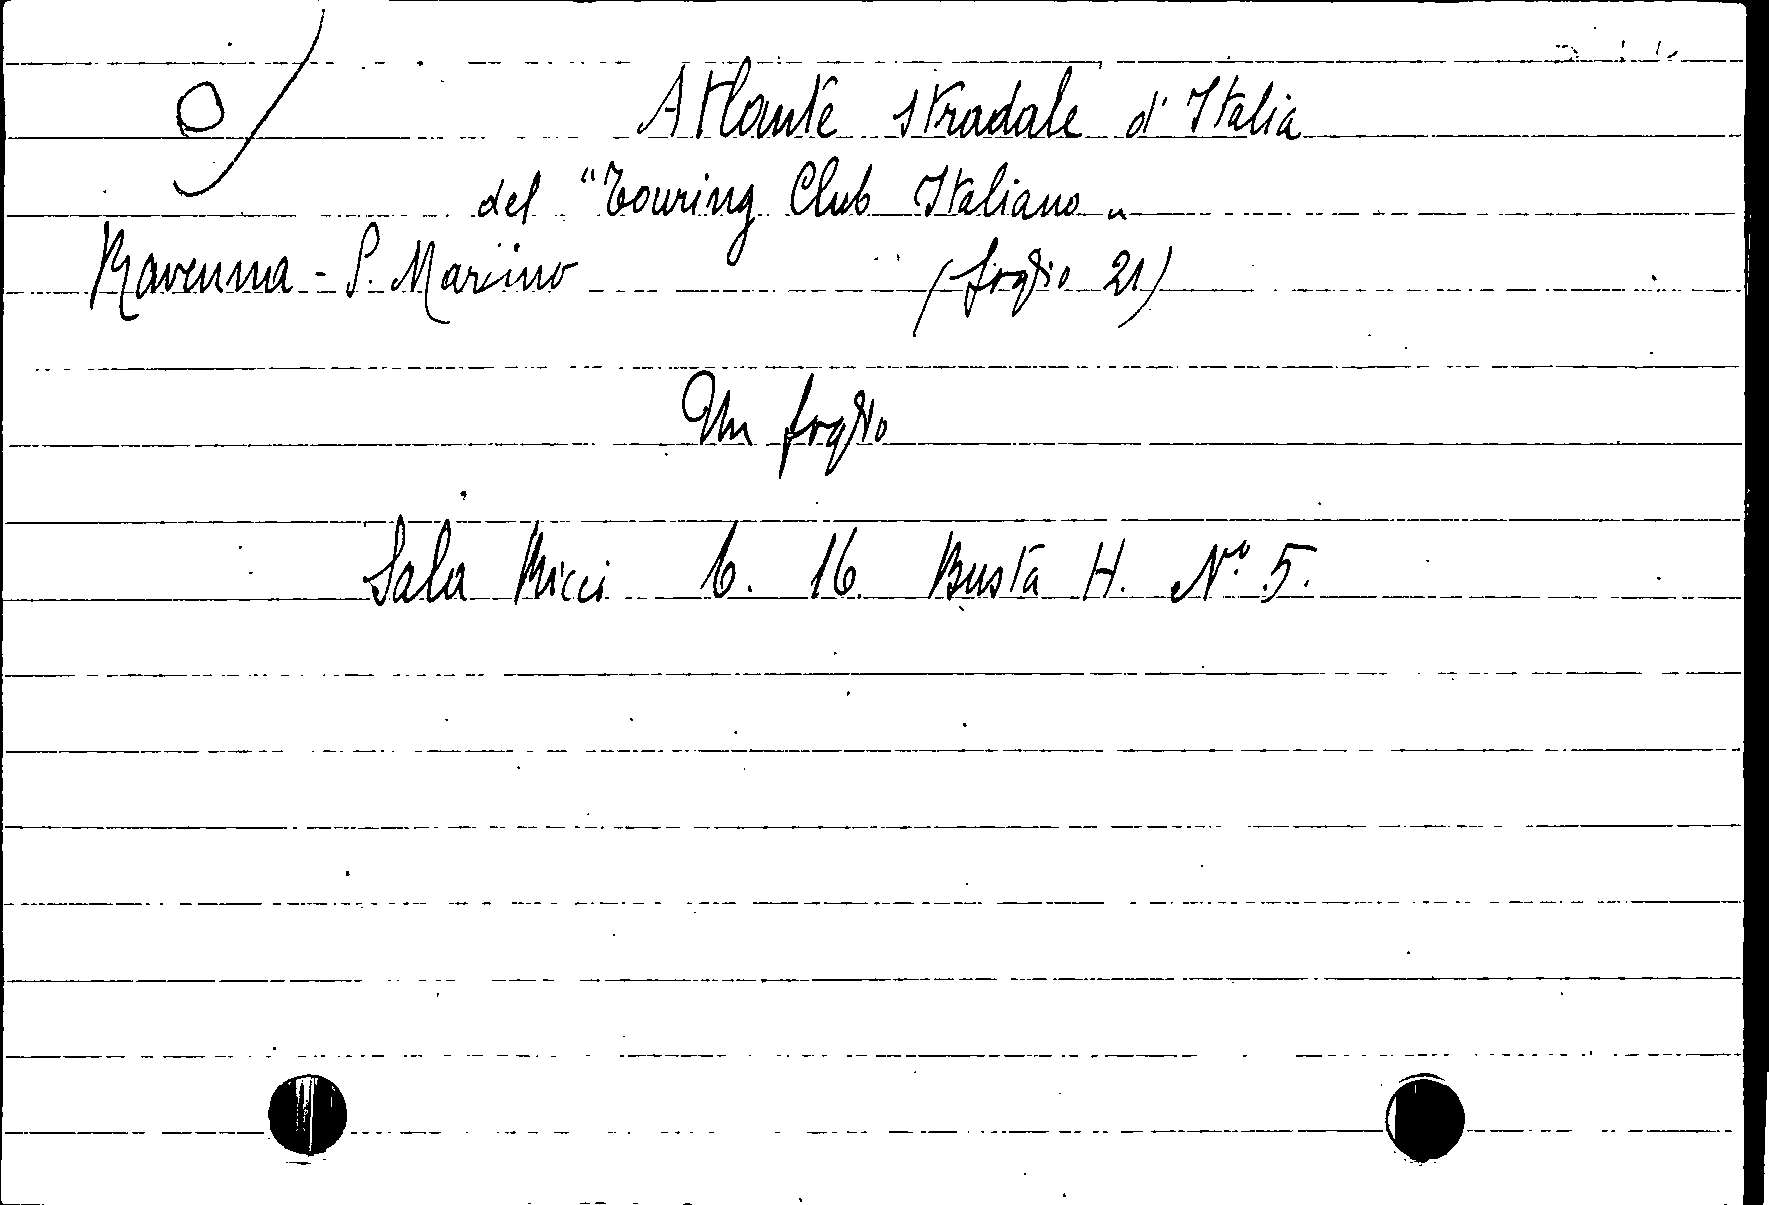 Atlante stradale d'Italia
del "Touring Club Italiano"
Ravenna - S. Marino (foglio 21)
Un foglio
Sala Ricci 6. 16 Busta H. Nº 5.